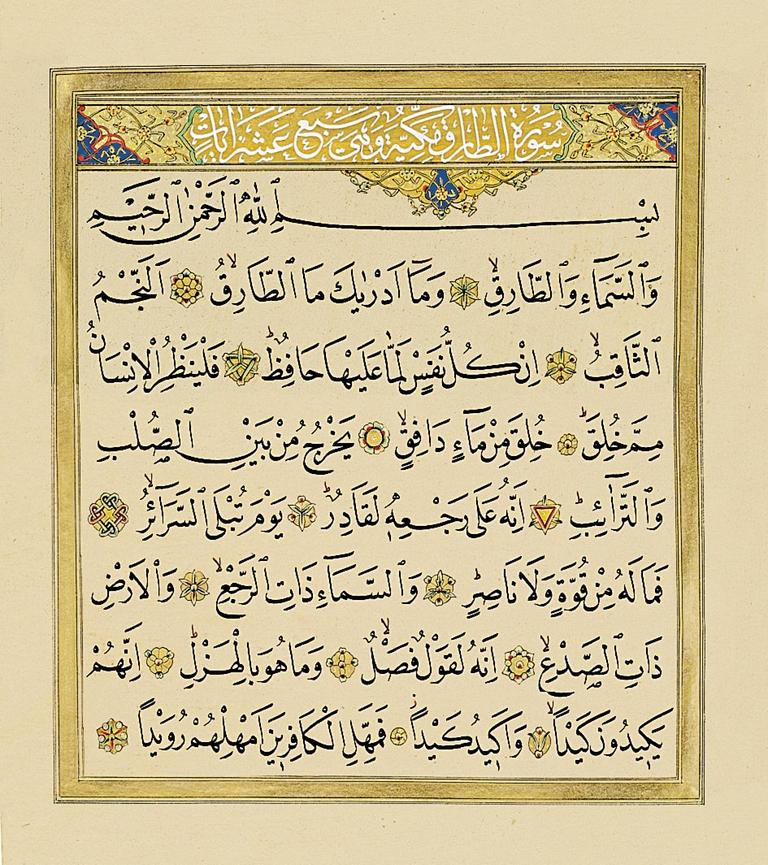 سُورَةُ الطَّارِقِ مَكِّيَّةٌ وَهِيَ سَبْعَ عَشَرَ آيَاتٍ
بِسْمِ اللّٰهِ الرَّحْمٰنِ الرَّحِيمِ
وَالسَّمَاءِ وَالطَّارِقِ وَمَا اَدْرٰيكَ مَا الطَّارِقُ اَلنَّجْمُ
الثَّاقِبُ اِنْ كُلُّ نَفْسٍ لَمَّا عَلَيْهَا حَافِظٌ فَلْيَنْظُرِ الْاِنْسَانُ
مِمَّ خُلِقَ خُلِقَ مِنْ مَاءٍ دَافِقٍ يَخْرُجُ مِنْ بَيْنِ الصُّلْبِ
وَالتَّرَائِبِ اِنَّهُ عَلٰى رَجْعِهِ لَقَادِرٌ يَوْمَ تُبْلَى السَّرَائِرُ
فَمَا لَهُ مِنْ قُوَّةٍ وَلَا نَاصِرٍ وَالسَّمَاءِ ذَاتِ الرَّجْعِ وَالْاَرْضِ
ذَاتِ الصَّدْعِ اِنَّهُ لَقَوْلٌ فَصْلٌ وَمَا هُوَ بِالْهَزْلِ اِنَّهُمْ
يَكِيدُونَ كَيْدًا وَاَكِيدُ كَيْدًا فَمَهِّلِ الْكَافِرِينَ اَمْهِلْهُمْ رُوَيْدًا